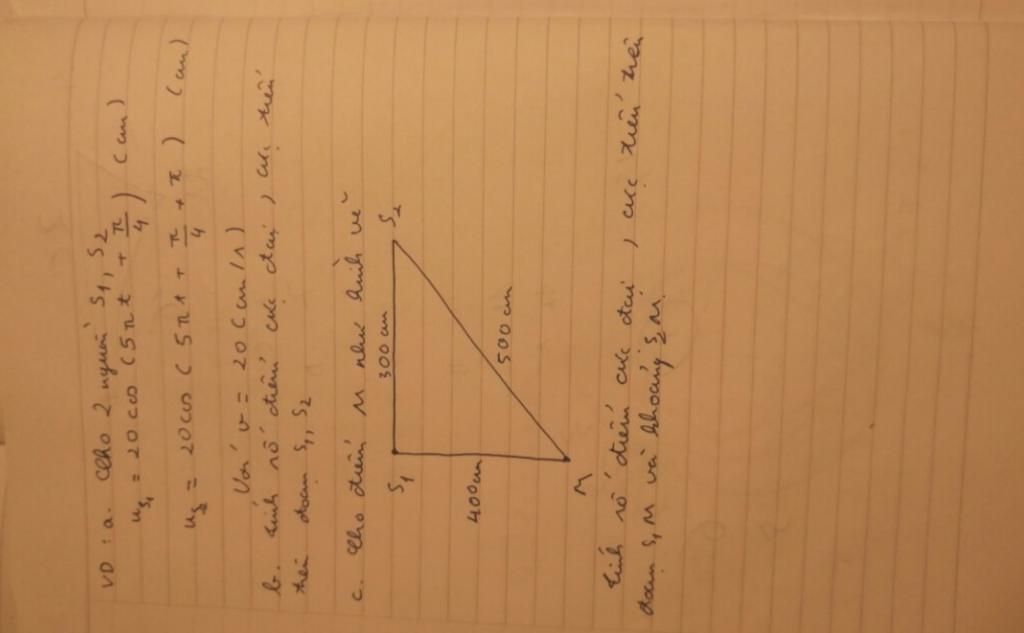 VD : a. Cho 2 nguồn S1, S2
uS1 = 20 cos (5πt + π/4) (cm)
uS2 = 20 cos (5πt + π/4 + π) (cm)
Với v = 20 (cm/s)
b. tính số điểm cực đại, cực tiểu
trên đoạn S1, S2
c. Cho điểm M như hình vẽ
S1 300 cm S2
400 cm 500 cm
M
tính số điểm cực đại, cực tiểu trên
đoạn S1M và khoảng S2M